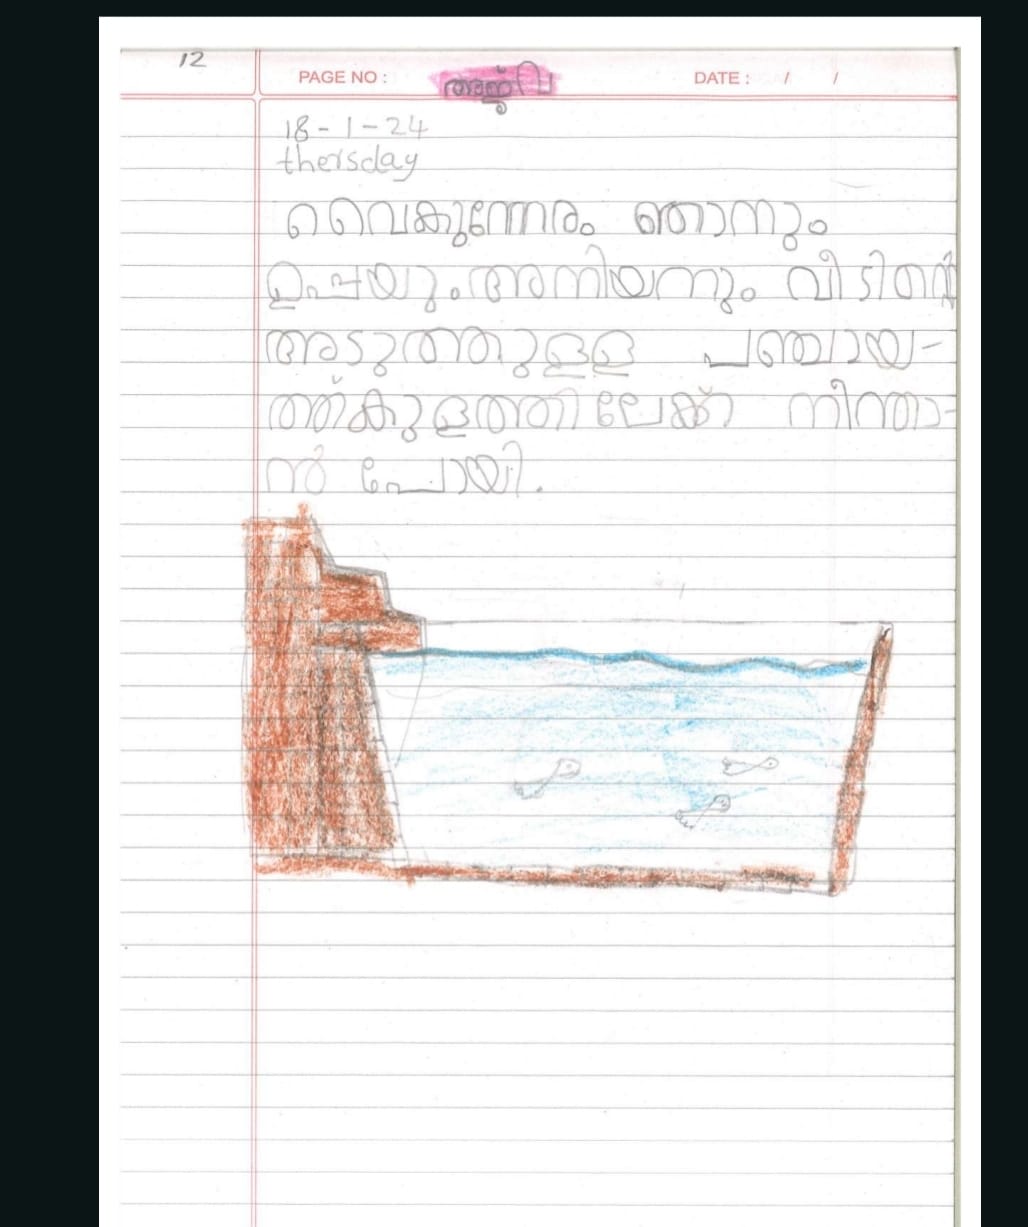 12
PAGE NO :
DATE : / /
18-1-24
thersday
വൈകുന്നേരം ഞാനും
ഉപ്പയും അനിയനും വീടിന്റെ
അടുത്തുളള പഞ്ചായ-
ത്ത്കുളത്തിലേക്ക് നീന്താ-
ൻ പോയി.